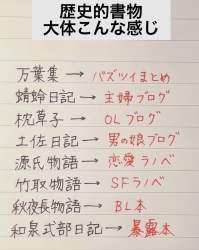 歴史的書物
大体こんな感じ
万葉集→バズツイまとめ
蜻蛉日記→主婦ブログ
枕草子→OLブログ
土佐日記→男の娘ブログ
源氏物語→恋愛ラノベ
竹取物語→SFラノベ
秋夜長物語→BL本
和泉式部日記→暴露本